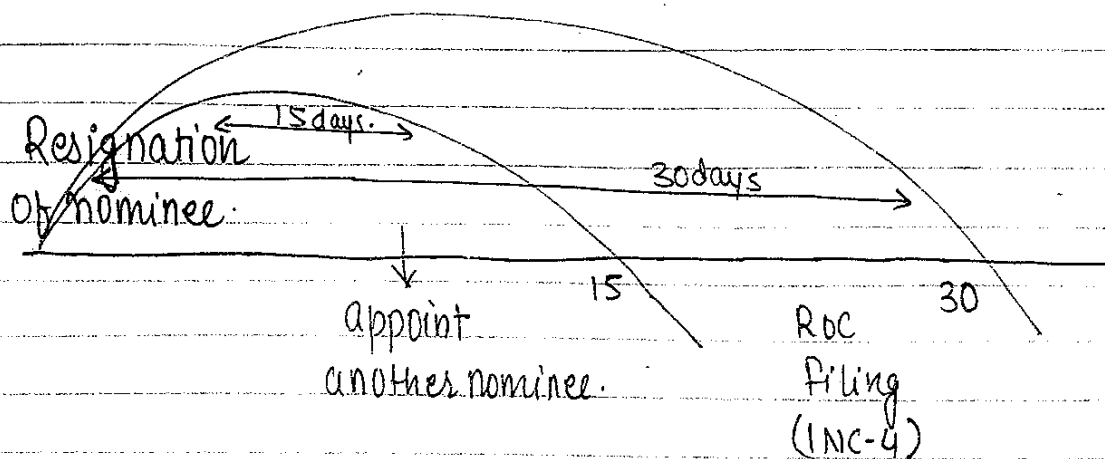 15 days.
Resignation
of nominee.
30days
15
30
appoint
another nominee.
ROC
Filing
(INC-4)